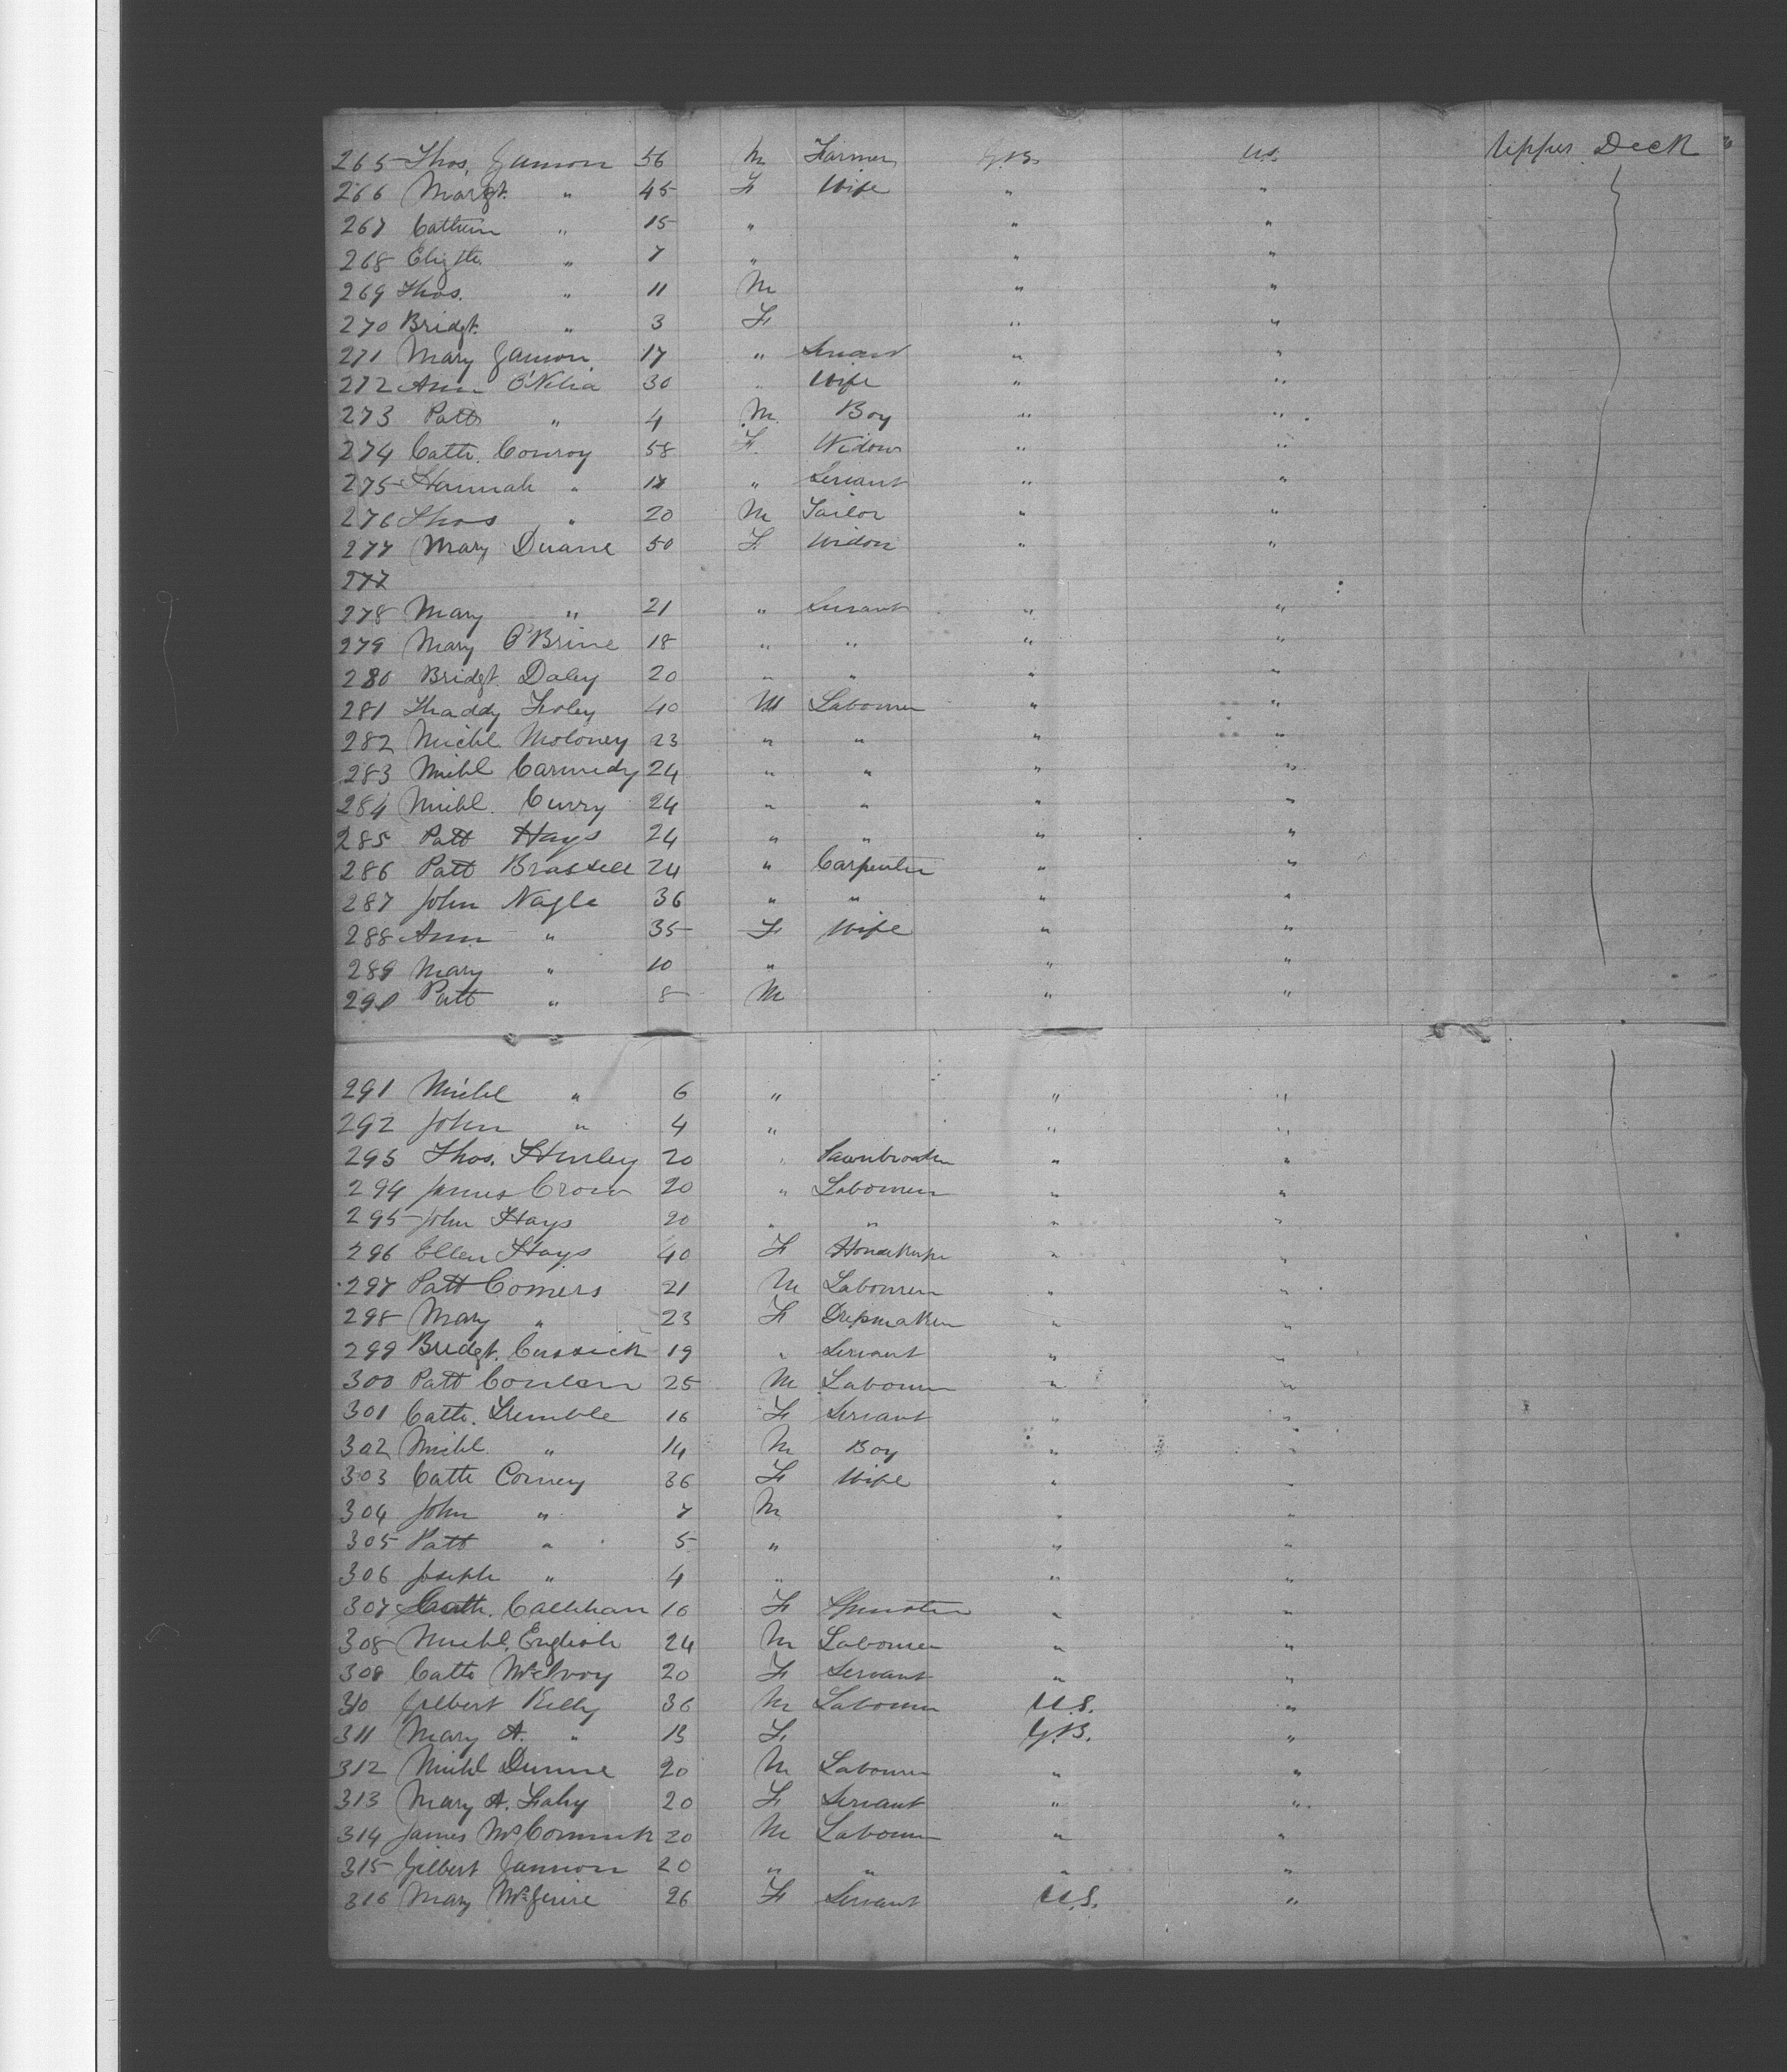 265 Thos. Gannon 56 M Farmer G.B. U.S. Upper Deck
266 Margt. " 45 F Wife " "
267 Cathrin " 15 " " "
268 Elizth. " 7 " " "
269 Thos. " 11 M " "
270 Bridgt. " 3 F " "
271 Mary Gannon 17 " Servant " "
272 Ann 30 " Wife " "
273 Patt " 4 M Boy " "
274 Cath. Conroy 58 F. Widow " "
275 Hannah " 17 " Servant " "
276 Thos " 20 M Tailor " "
277 Mary Duane 50 F Widow " "
277
278 Mary " 21 " Servant " "
279 Mary O'Brine 18 " " " "
280 Bridgt. Daley 20 " " " "
281 Thaddy Foley 40 M Labourer " "
282 Michl. Moloney 23 " " " "
283 Michl Carmedy 24 " " " "
284 Michl. Curry 24 " " " "
285 Patt Hays 24 " " " "
286 Patt Brassell 24 " Carpenter " "
287 John Nagle 36 " " " "
288 Ann " 35 F Wife " "
289 Mary " 10 " " "
290 Patt " 8 M " "
291 Michl " 6 " " "
292 John " 4 " " "
293 Thos. Hurley 20 " " "
294 James Crow 20 " Labourer " "
295 John Hays 20 " " " "
296 Ellen Hays 40 F Housekeeper " "
297 Patt Comers 21 M Labourer " "
298 Mary " 23 F Dressmaker " "
299 Bridgt. Cussick 19 " Servant " "
300 Patt Conlan 25 M Labourer " "
301 Cath. Trimble 16 F Servant " "
302 Michl " 14 M Boy " "
303 Cath Corney 36 F Wife " "
304 John " 7 M " "
305 Patt " 5 " " "
306 Joseph " 4 " " "
307 Cath. Callihan 16 F Spinster " "
308 Michl. English 24 M Labourer " "
309 Cath McIvoy 20 F Servant " "
310 Gilbert Kelly 36 M Labourer U.S. "
311 Mary A. " 13 F. G.B. "
312 Michl Dunne 20 M Labourer " "
313 Mary A. Fahy 20 F Servant " "
314 James McCormick 20 M Labourer " "
315 Gilbert Gannon 20 " " " "
316 Mary McGuire 26 F Servant U.S. "